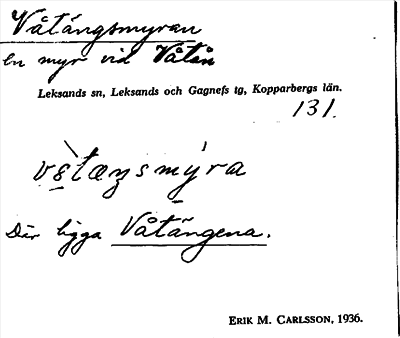 Våtängsmyran
En myr vid Våtån
Leksands sn, Leksands och Gagnefs tg, Kopparbergs län.
131.
vètæŋsmýra
Där ligga Våtängena.
ERIK M. CARLSSON, 1936.